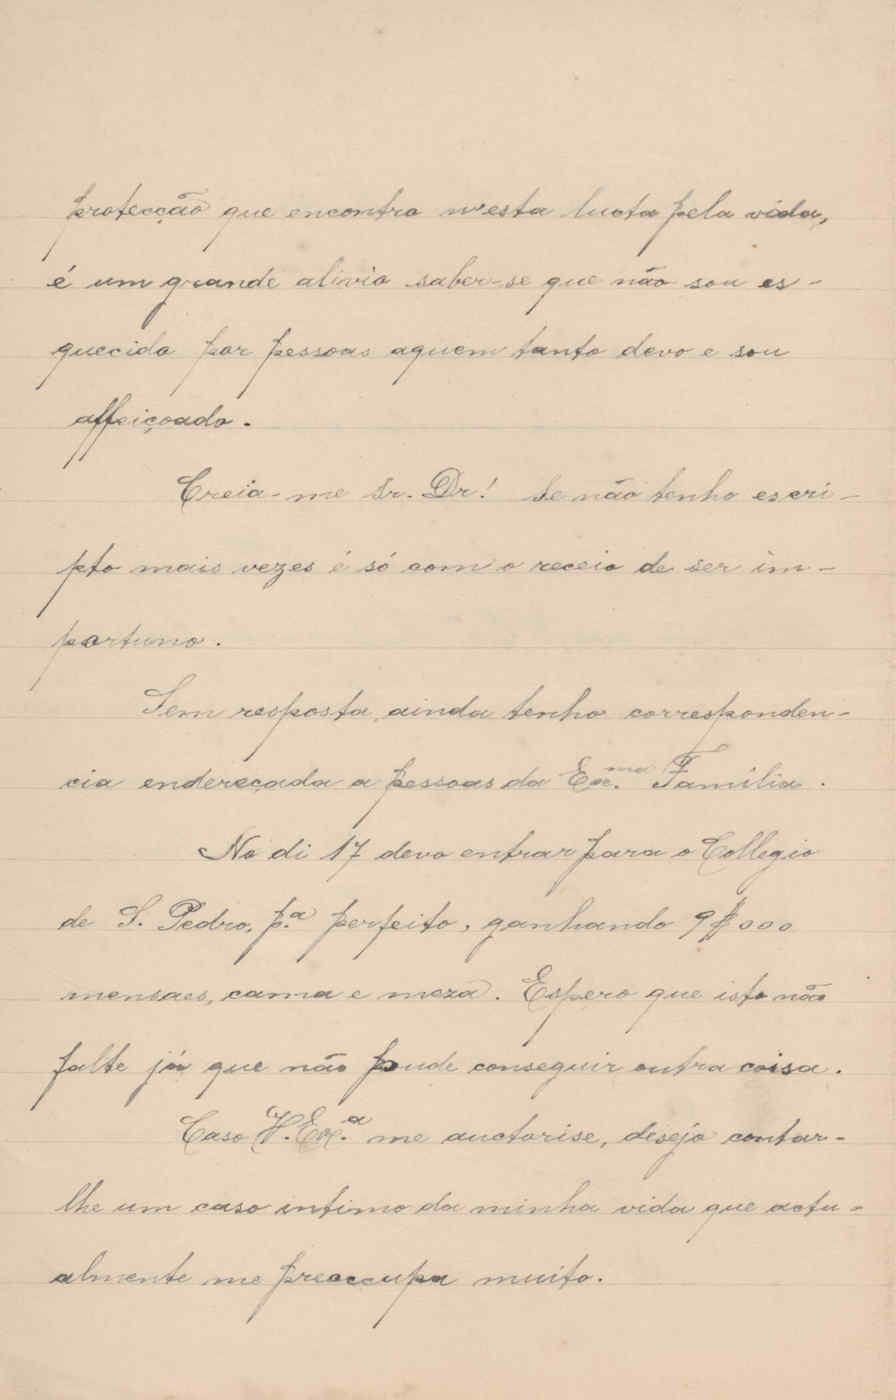 protecção que encontro n'esta lucta pela vida,
é um grande alivio saber-se que não sou es-
quecido por pessoas aquem tanto devo e sou
affeiçoado.
Creia-me Sr. Dr! Se não tenho escri-
pto mais vezes é só com o receio de ser im-
portuno.
Sem resposta, ainda tenho corresponden-
cia endereçada a pessoas da Ex.ma Familia.
No di 17 devo entrar para o Collegio
de S. Pedro, p.a perfeito, ganhando 9$000
mensaes, cama e meza. Espero que isto não
falte já que não pude conseguir outra coisa.
Caso V. Ex.a me auctorise, desejo contar-
lhe um caso intimo da minha vida que actu-
almente me preoccupa muito.